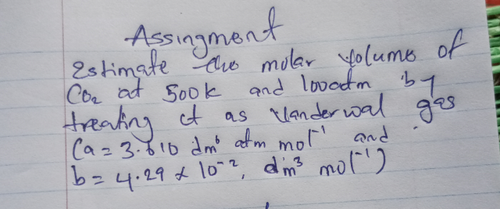 Assingment
Estimate the molar volume of
CO2 at 500k and 100atm by
treating it as Vanderwal gas
(a = 3.610 dm⁶ atm mol⁻¹ and
b = 4.29 x 10⁻², dm³ mol⁻¹)